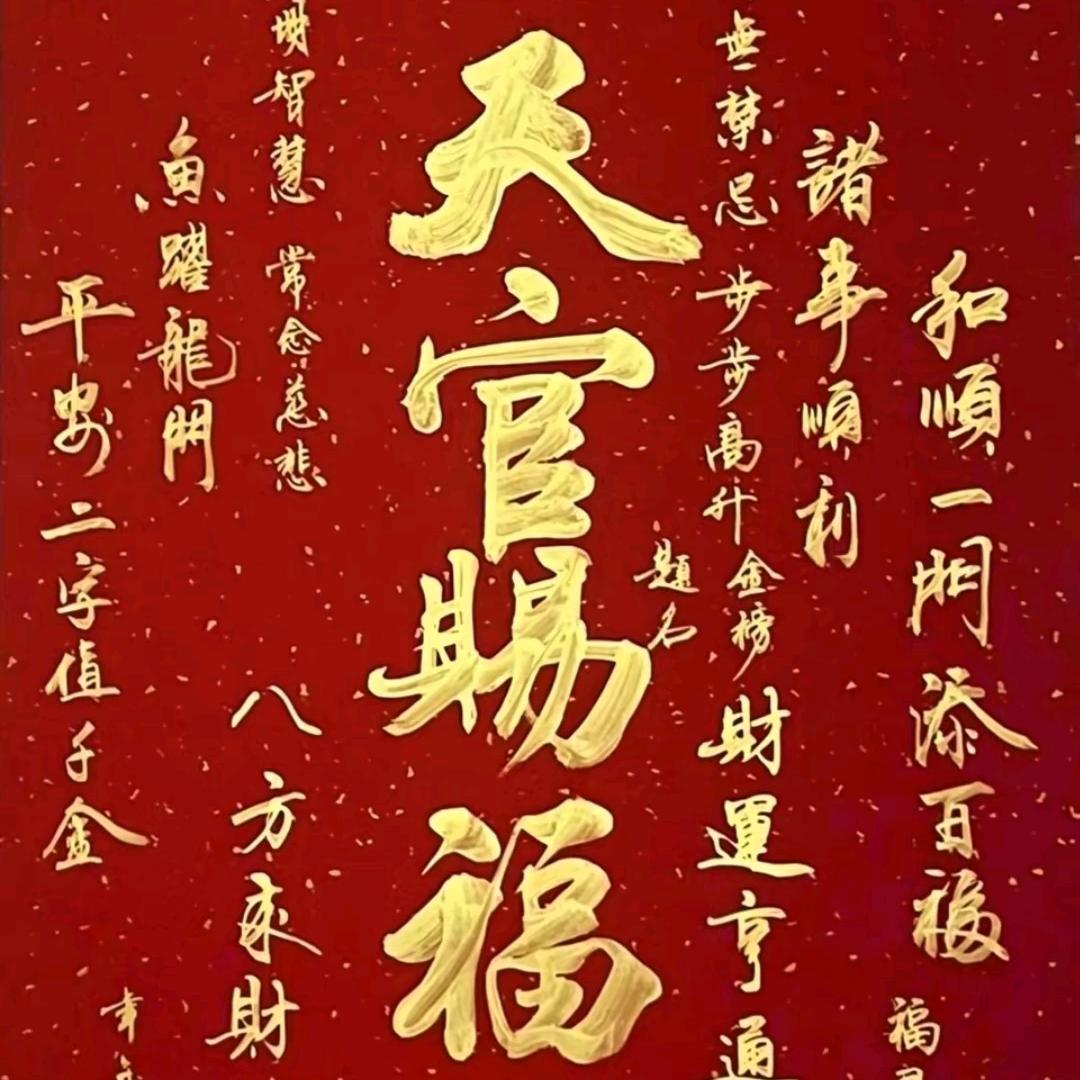 和順一門添百福
福
諸事順利
無禁忌 步步高升 金榜
題名
財運亨通
天官賜福
明智慧 常念慈悲
八方來財
魚躍龍門
平安二字值千金